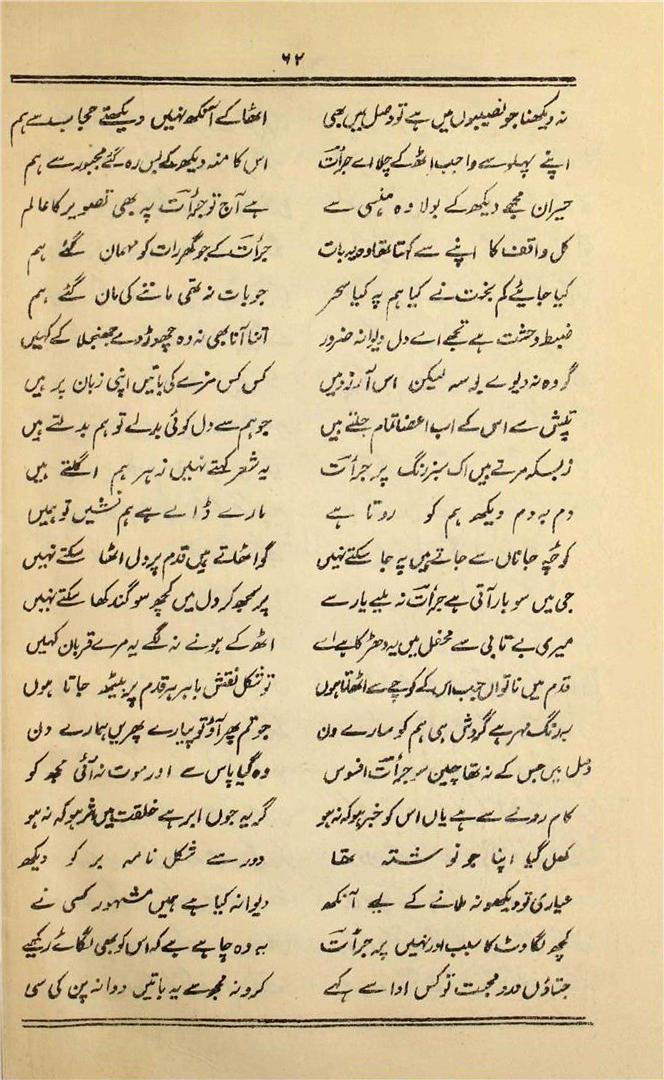 ۶۲
نہ دیکھنا جو نصیبوں میں ہے تو وصل میں بھی اٹھا کے آنکھ نہیں دیکھتے حجاب سے ہم
اپنے پہلو سے وا جب اٹھ کے چلا اے جرأت اس کا منہ دیکھ کے بس رہ گئے مجبور سے ہم
حیران مجھے دیکھ کے بولا وہ ہنسی سے ہے آج تو جرأت پہ بھی تصویر کا عالم
کل واقف کا اپنے سے کہتا تھا وہ یہ بات جرأت کے جو گھر رات کو مہمان گئے ہم
کیا جانیے کم بخت نے کیا ہم پہ کیا سحر جو بات نہ تھی ماننے کی مان گئے ہم
ضبط وحشت ہے تجھے اے دل دیوانہ ضرور اتنا آنا بھی نہ وہ چھوڑ دے جھنجلا کے کہیں
گو وہ نہ دیوے بوسہ لیکن اس آرزو میں کس کس مزے کی باتیں اپنی زبان پر ہیں
تپش سے اس کے اب اعضا تمام جلتے ہیں جو ہم سے دل کوئی بدلے تو ہم بدلتے ہیں
زبسکہ مرتے ہیں اک سبز رنگ پر جرأت یہ شعر کہتے نہیں زہر ہم اگلتے ہیں
دم بہ دم دیکھ ہم کو روتا ہے مارے ڈالے ہے ہم نشیں تو ہمیں
کوچہ جاناں سے جاتے ہیں پہ جا سکتے نہیں گو اٹھاتے ہیں قدم پر دل اٹھا سکتے نہیں
جی میں سو بار آتی ہے جرأت نہ ملیے یار سے پر سمجھ کر دل میں کچھ سوگند کھا سکتے نہیں
میری بے تابی سے محفل میں یہ دھڑکا ہے اسے اٹھ کے ہونے نہ لگے یہ مرے قربان کہیں
قدم میں ناتواں جب اس کے کوچے سے اٹھاتا ہوں تو شکل نقش پا ہر ہر قدم پر بیٹھ جاتا ہوں
برنگ مہر ہے گردش ہی ہم کو سارے دن جو تم پھر آؤ تو پیارے پھریں ہمارے دن
وصل میں جس کے نہ تھا چین سو جرأت افسوس وہ گیا پاس سے اور موت نہ آئی مجھ کو
کام رونے سے ہے یاں اس کو خبر ہو کہ نہ ہو گریہ جوں ابر ہے خلقت میں اثر ہو کہ نہ ہو
کھل گیا اپنا جو نوشتہ تھا دور سے شکل نامہ بر کو دیکھ
عیاری تو دیکھو نہ ملانے کے لیے آنکھ دیوانہ کیا ہے ہمیں مشہور کسی نے
کچھ لگاوٹ کا سبب اور نہیں پر جرأت یہ وہ چاہے ہے کہ اس کو بھی لگائے رکھیے
جتاؤں درد محبت تو کس ادا سے کہے کرو نہ مجھ سے یہ باتیں دوانہ پن کی سی